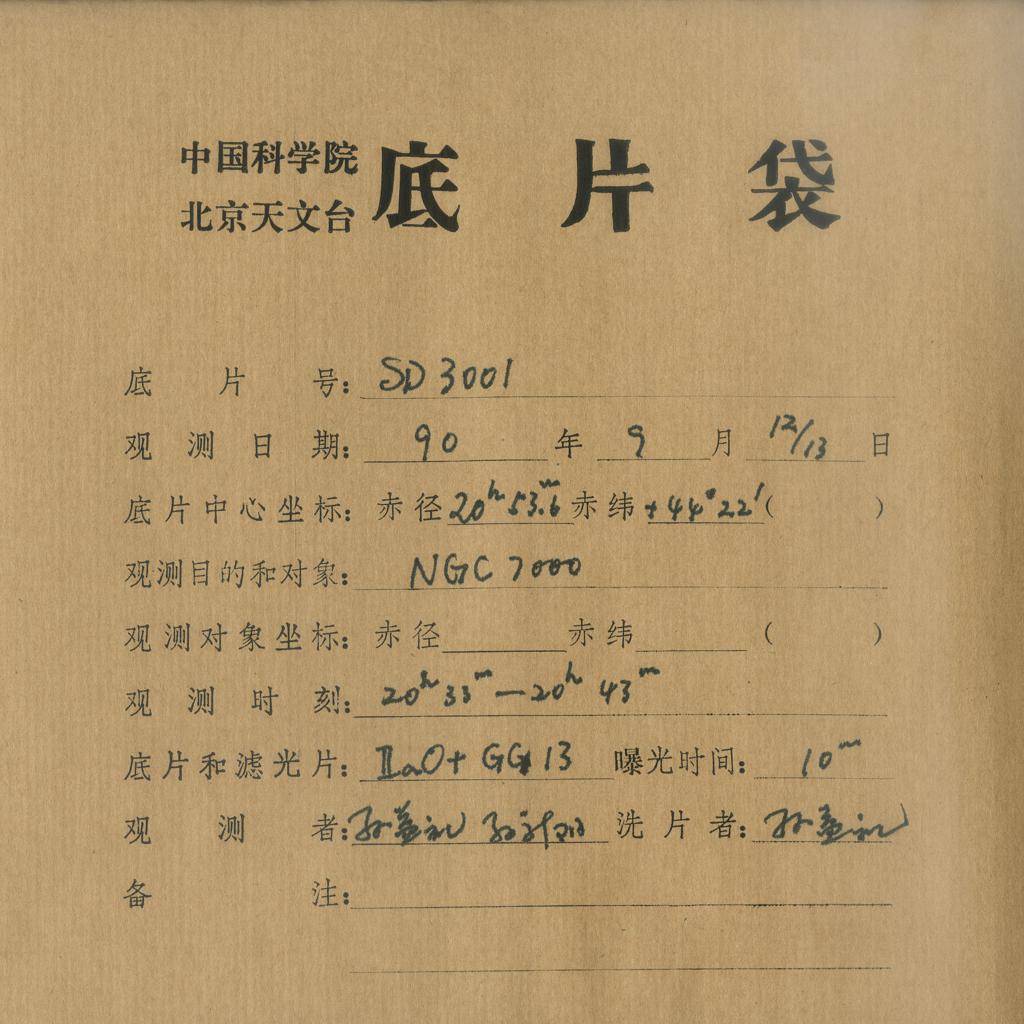 中国科学院
北京天文台
底片袋
底片号: SD 3001
观测日期: 90 年 9 月 12/13 日
底片中心坐标: 赤径 20h 53.6m 赤纬 +44°22′ ( )
观测目的和对象: NGC 7000
观测对象坐标: 赤径 赤纬 ( )
观测时刻: 20h 33m — 20h 43m
底片和滤光片: IIaO + GG 13 曝光时间: 10m
观测者: 孙益礼 洗片者: 孙益礼
备注: